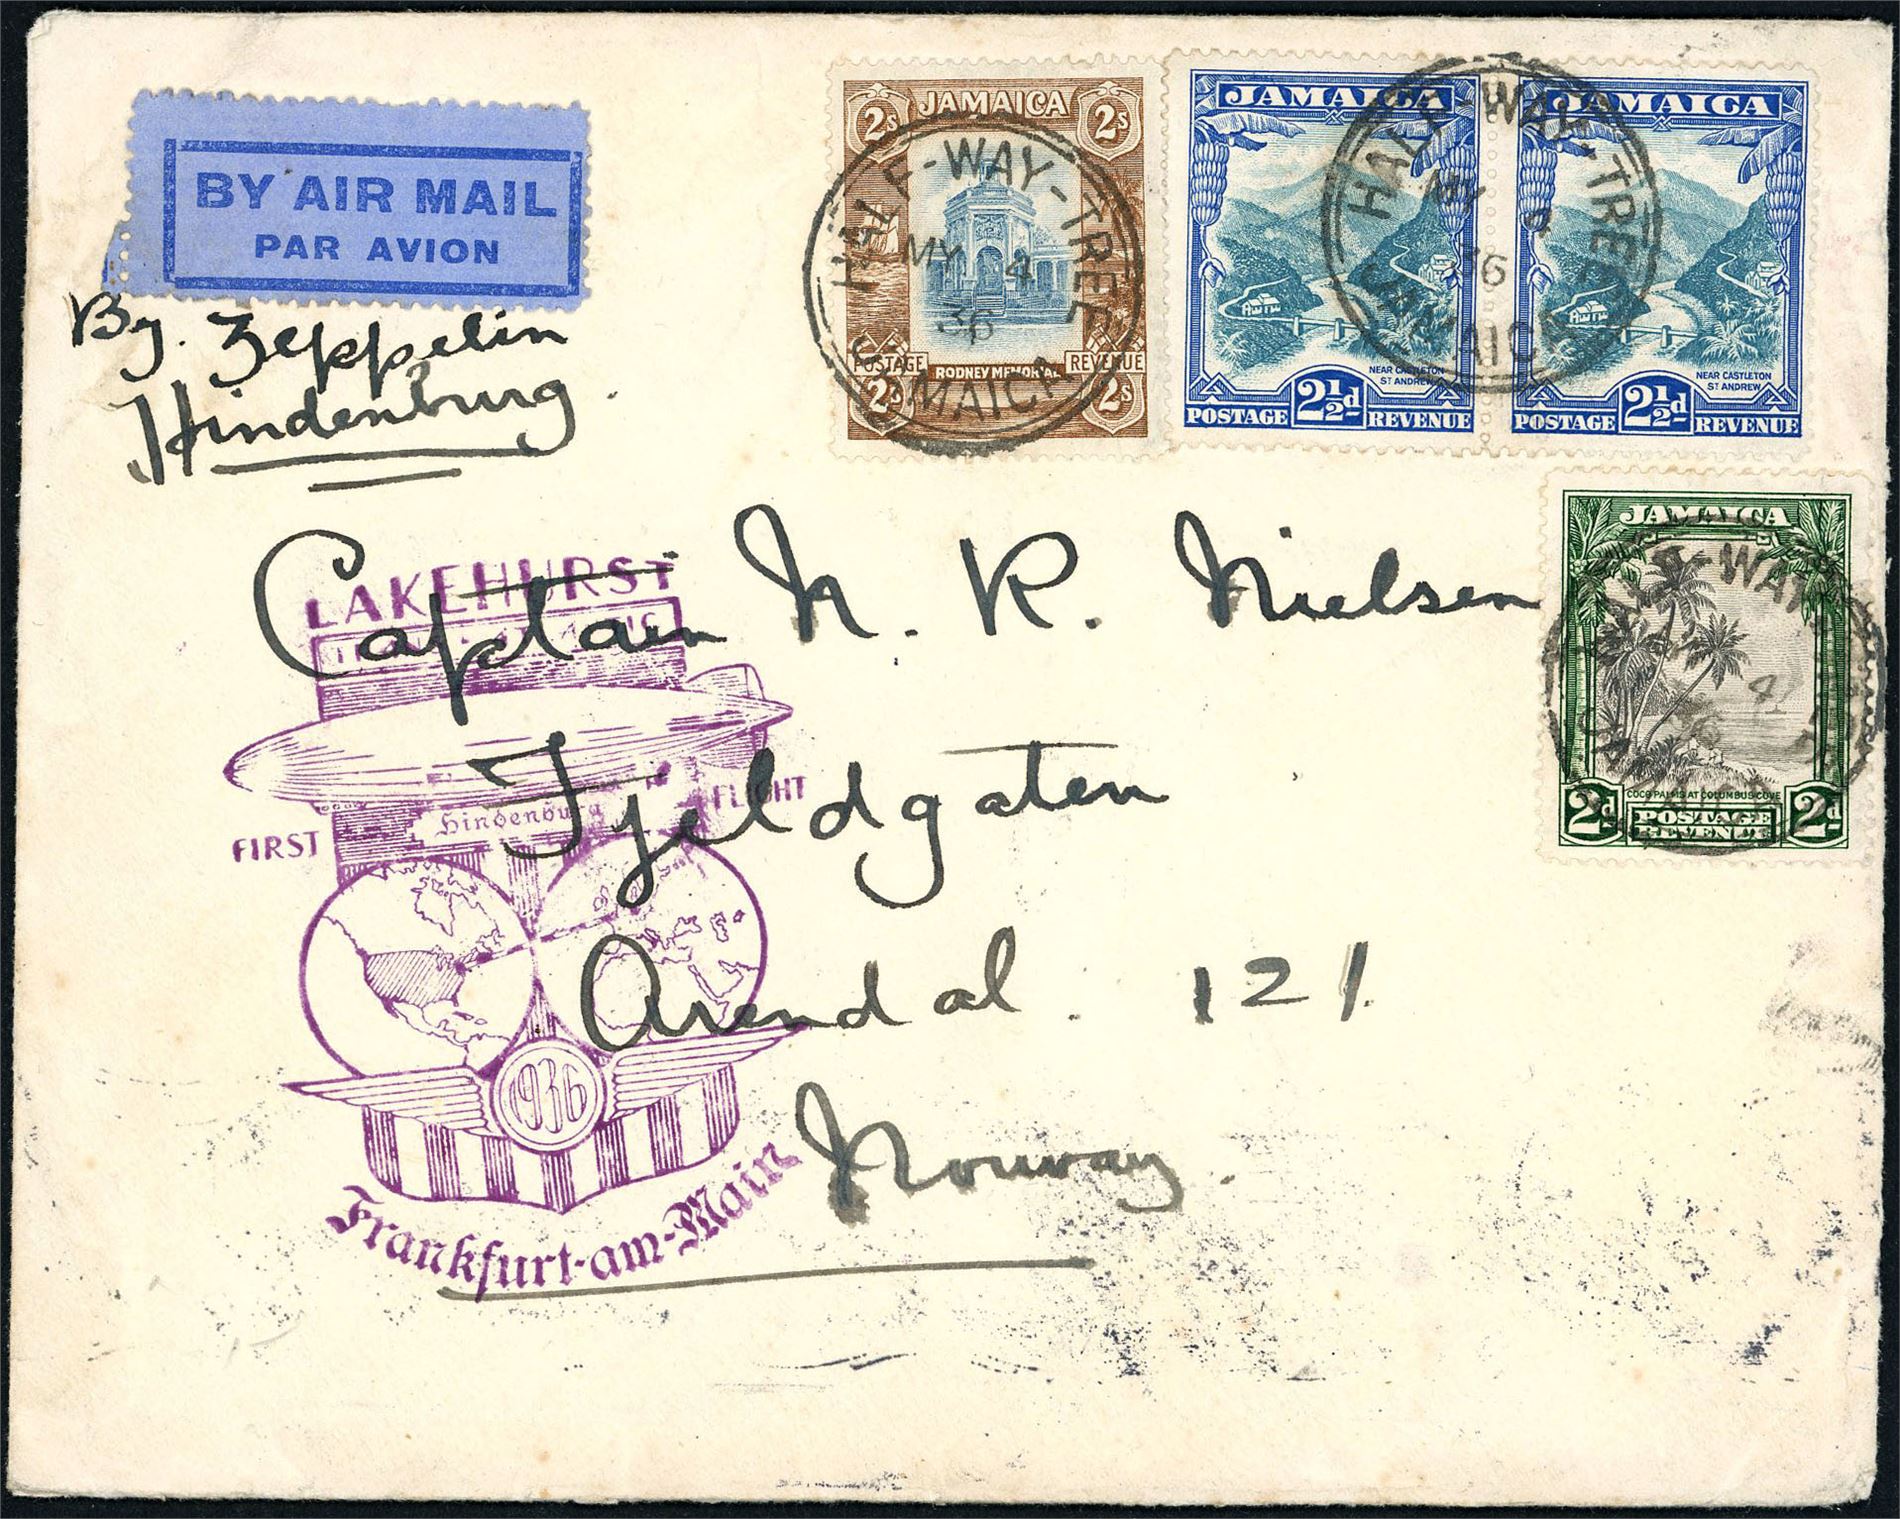 BY AIR MAIL
PAR AVION
By. Zeppelin
Hindenburg.
JAMAICA
2s 2s
POSTAGE REVENUE
RODNEY MEMORIAL
2s 2s
HALF-WAY-TREE
MY 4
36
JAMAICA
JAMAICA
NEAR CASTLETON
ST ANDREW
POSTAGE 2½d REVENUE
JAMAICA
NEAR CASTLETON
ST ANDREW
POSTAGE 2½d REVENUE
HALF-WAY-TREE
MY
36
JAMAICA
JAMAICA
COCO PALMS AT COLUMBUS COVE
2d POSTAGE 2d
REVENUE
HALF-WAY
4
36
Captain N. R. Nielsen
Fjeldgaten
Arendal. 121.
Norway.
LAKEHURST
FIRST Hindenburg FLIGHT
1936
Frankfurt-am-Main